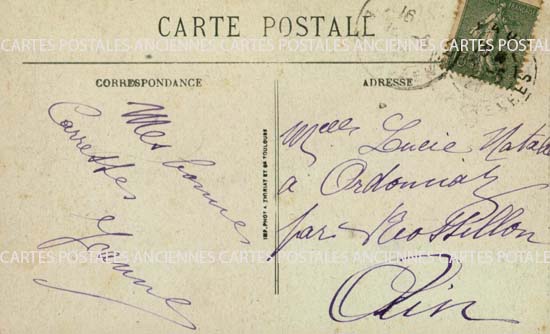 CARTE POSTALE
CORRESPONDANCE
ADRESSE
Mes bonnes
Caresses
Jeanne
IMP. PHOT. A. THIRIAT ET Cie TOULOUSE
Melle Lucie Natal
à Ordonnaz
par Rossillon
Ain
CARTES POSTALES ANCIENNES CARTES POSTALES ANCIENNES CARTES POSTALES
CARTES POSTALES ANCIENNES CARTES POSTALES ANCIENNES CARTES POSTALES